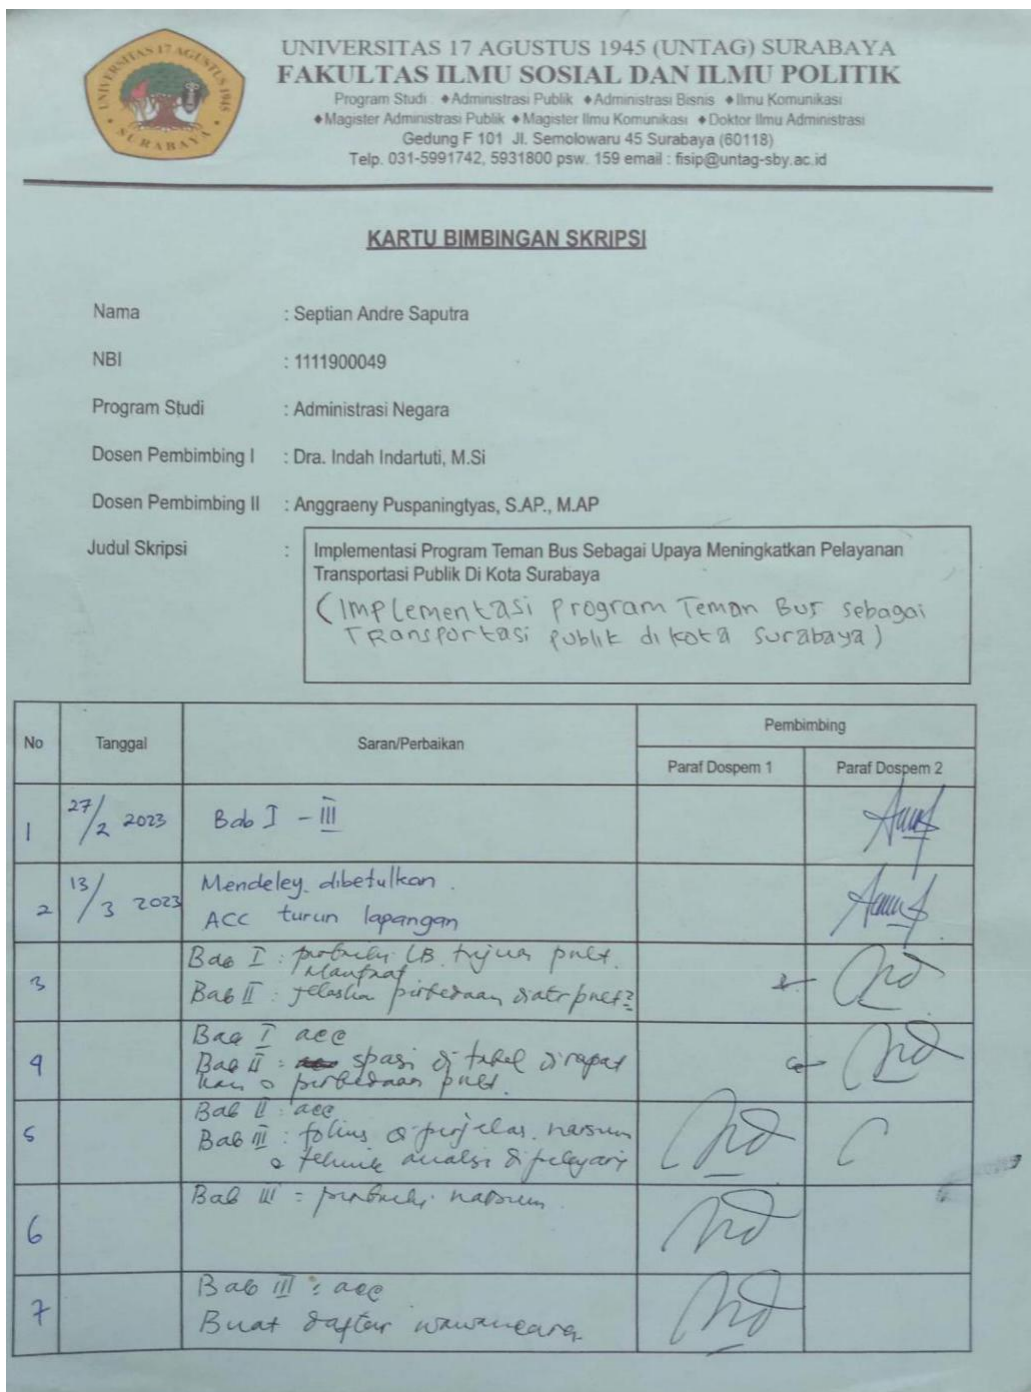 UNIVERSITAS 17 AGUSTUS 1945
SURABAYA
UNIVERSITAS 17 AGUSTUS 1945 (UNTAG) SURABAYA
FAKULTAS ILMU SOSIAL DAN ILMU POLITIK
Program Studi : ◆Administrasi Publik ◆Administrasi Bisnis ◆Ilmu Komunikasi
◆Magister Administrasi Publik ◆Magister Ilmu Komunikasi ◆Doktor Ilmu Administrasi
Gedung F 101 Jl. Semolowaru 45 Surabaya (60118)
Telp. 031-5991742, 5931800 psw. 159 email : fisip@untag-sby.ac.id
KARTU BIMBINGAN SKRIPSI
Nama : Septian Andre Saputra
NBI : 1111900049
Program Studi : Administrasi Negara
Dosen Pembimbing I : Dra. Indah Indartuti, M.Si
Dosen Pembimbing II : Anggraeny Puspaningtyas, S.AP., M.AP
Judul Skripsi : Implementasi Program Teman Bus Sebagai Upaya Meningkatkan Pelayanan
Transportasi Publik Di Kota Surabaya
(Implementasi Program Teman Bus sebagai
Transportasi publik di kota Surabaya)
No Tanggal Saran/Perbaikan Pembimbing
Paraf Dospem 1 Paraf Dospem 2
1 27/2 2023 Bab I - III
2 13/3 2023 Mendeley dibetulkan.
ACC turun lapangan
3 Bab I : LB tujuan
Manfaat
Bab II : perbedaan
4 Bab I acc
Bab II : spasi di tabel dirapat
kan perbedaan
5 Bab II : acc
Bab III : narsum
analisi
6 Bab III = narsum
7 Bab III : acc
Buat daftar wawancara